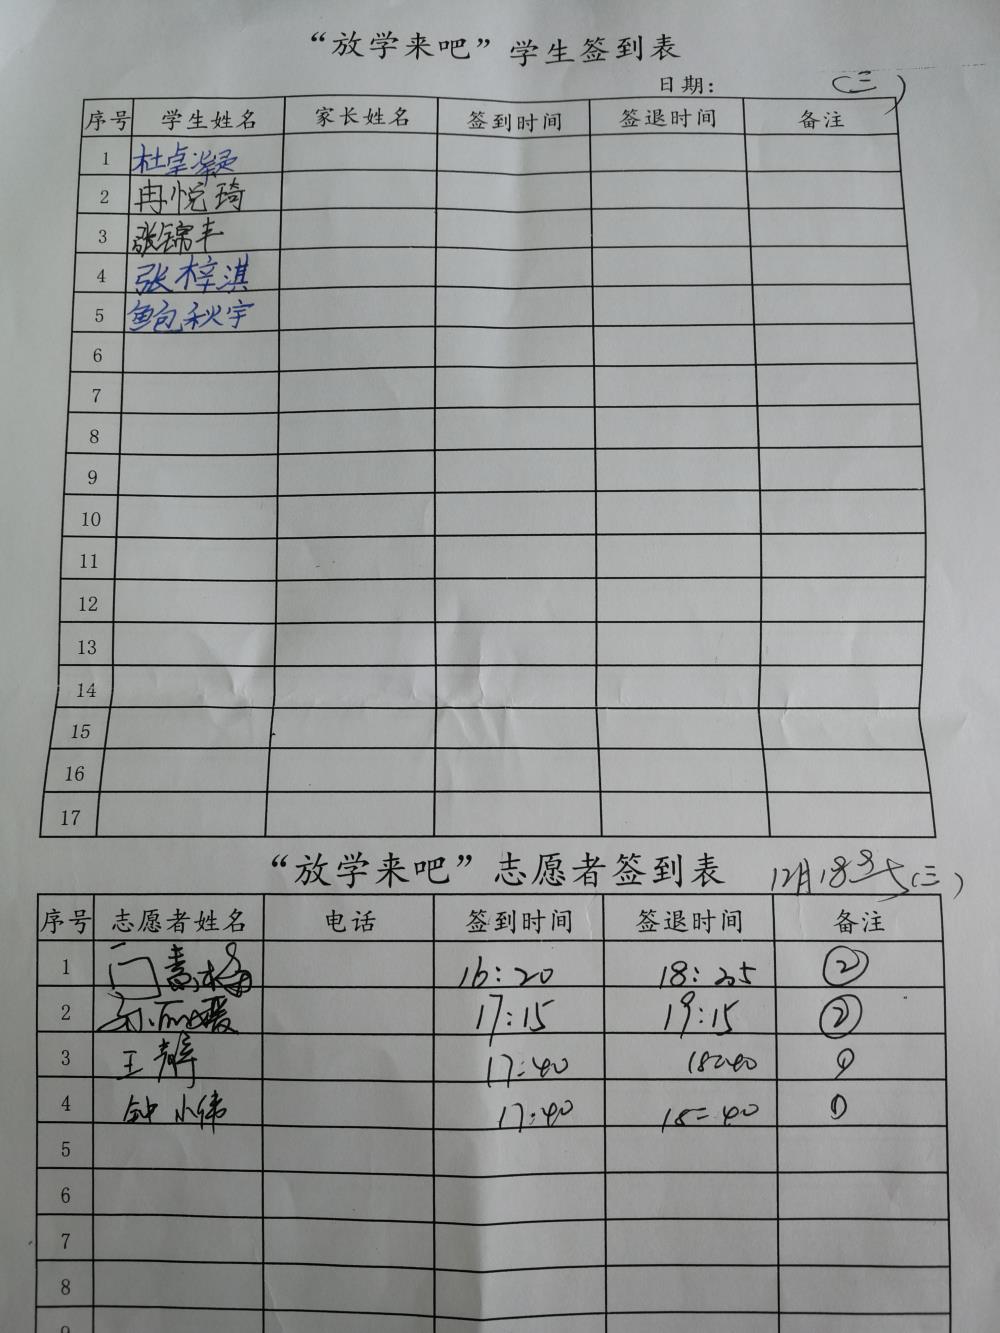 “放学来吧”学生签到表
日期： （三）
序号 学生姓名 家长姓名 签到时间 签退时间 备注
1 杜卓凝
2 冉悦琦
3 张锦丰
4 张梓淇
5 鲍秋宇
6
7
8
9
10
11
12
13
14
15
16
17
“放学来吧”志愿者签到表 12月18号（三）
序号 志愿者姓名 电话 签到时间 签退时间 备注
1 16:20 18:25 ②
2 17:15 19:15 ②
3 王 17:40 18:40 ①
4 钟小伟 17:40 18:40 ①
5
6
7
8
9